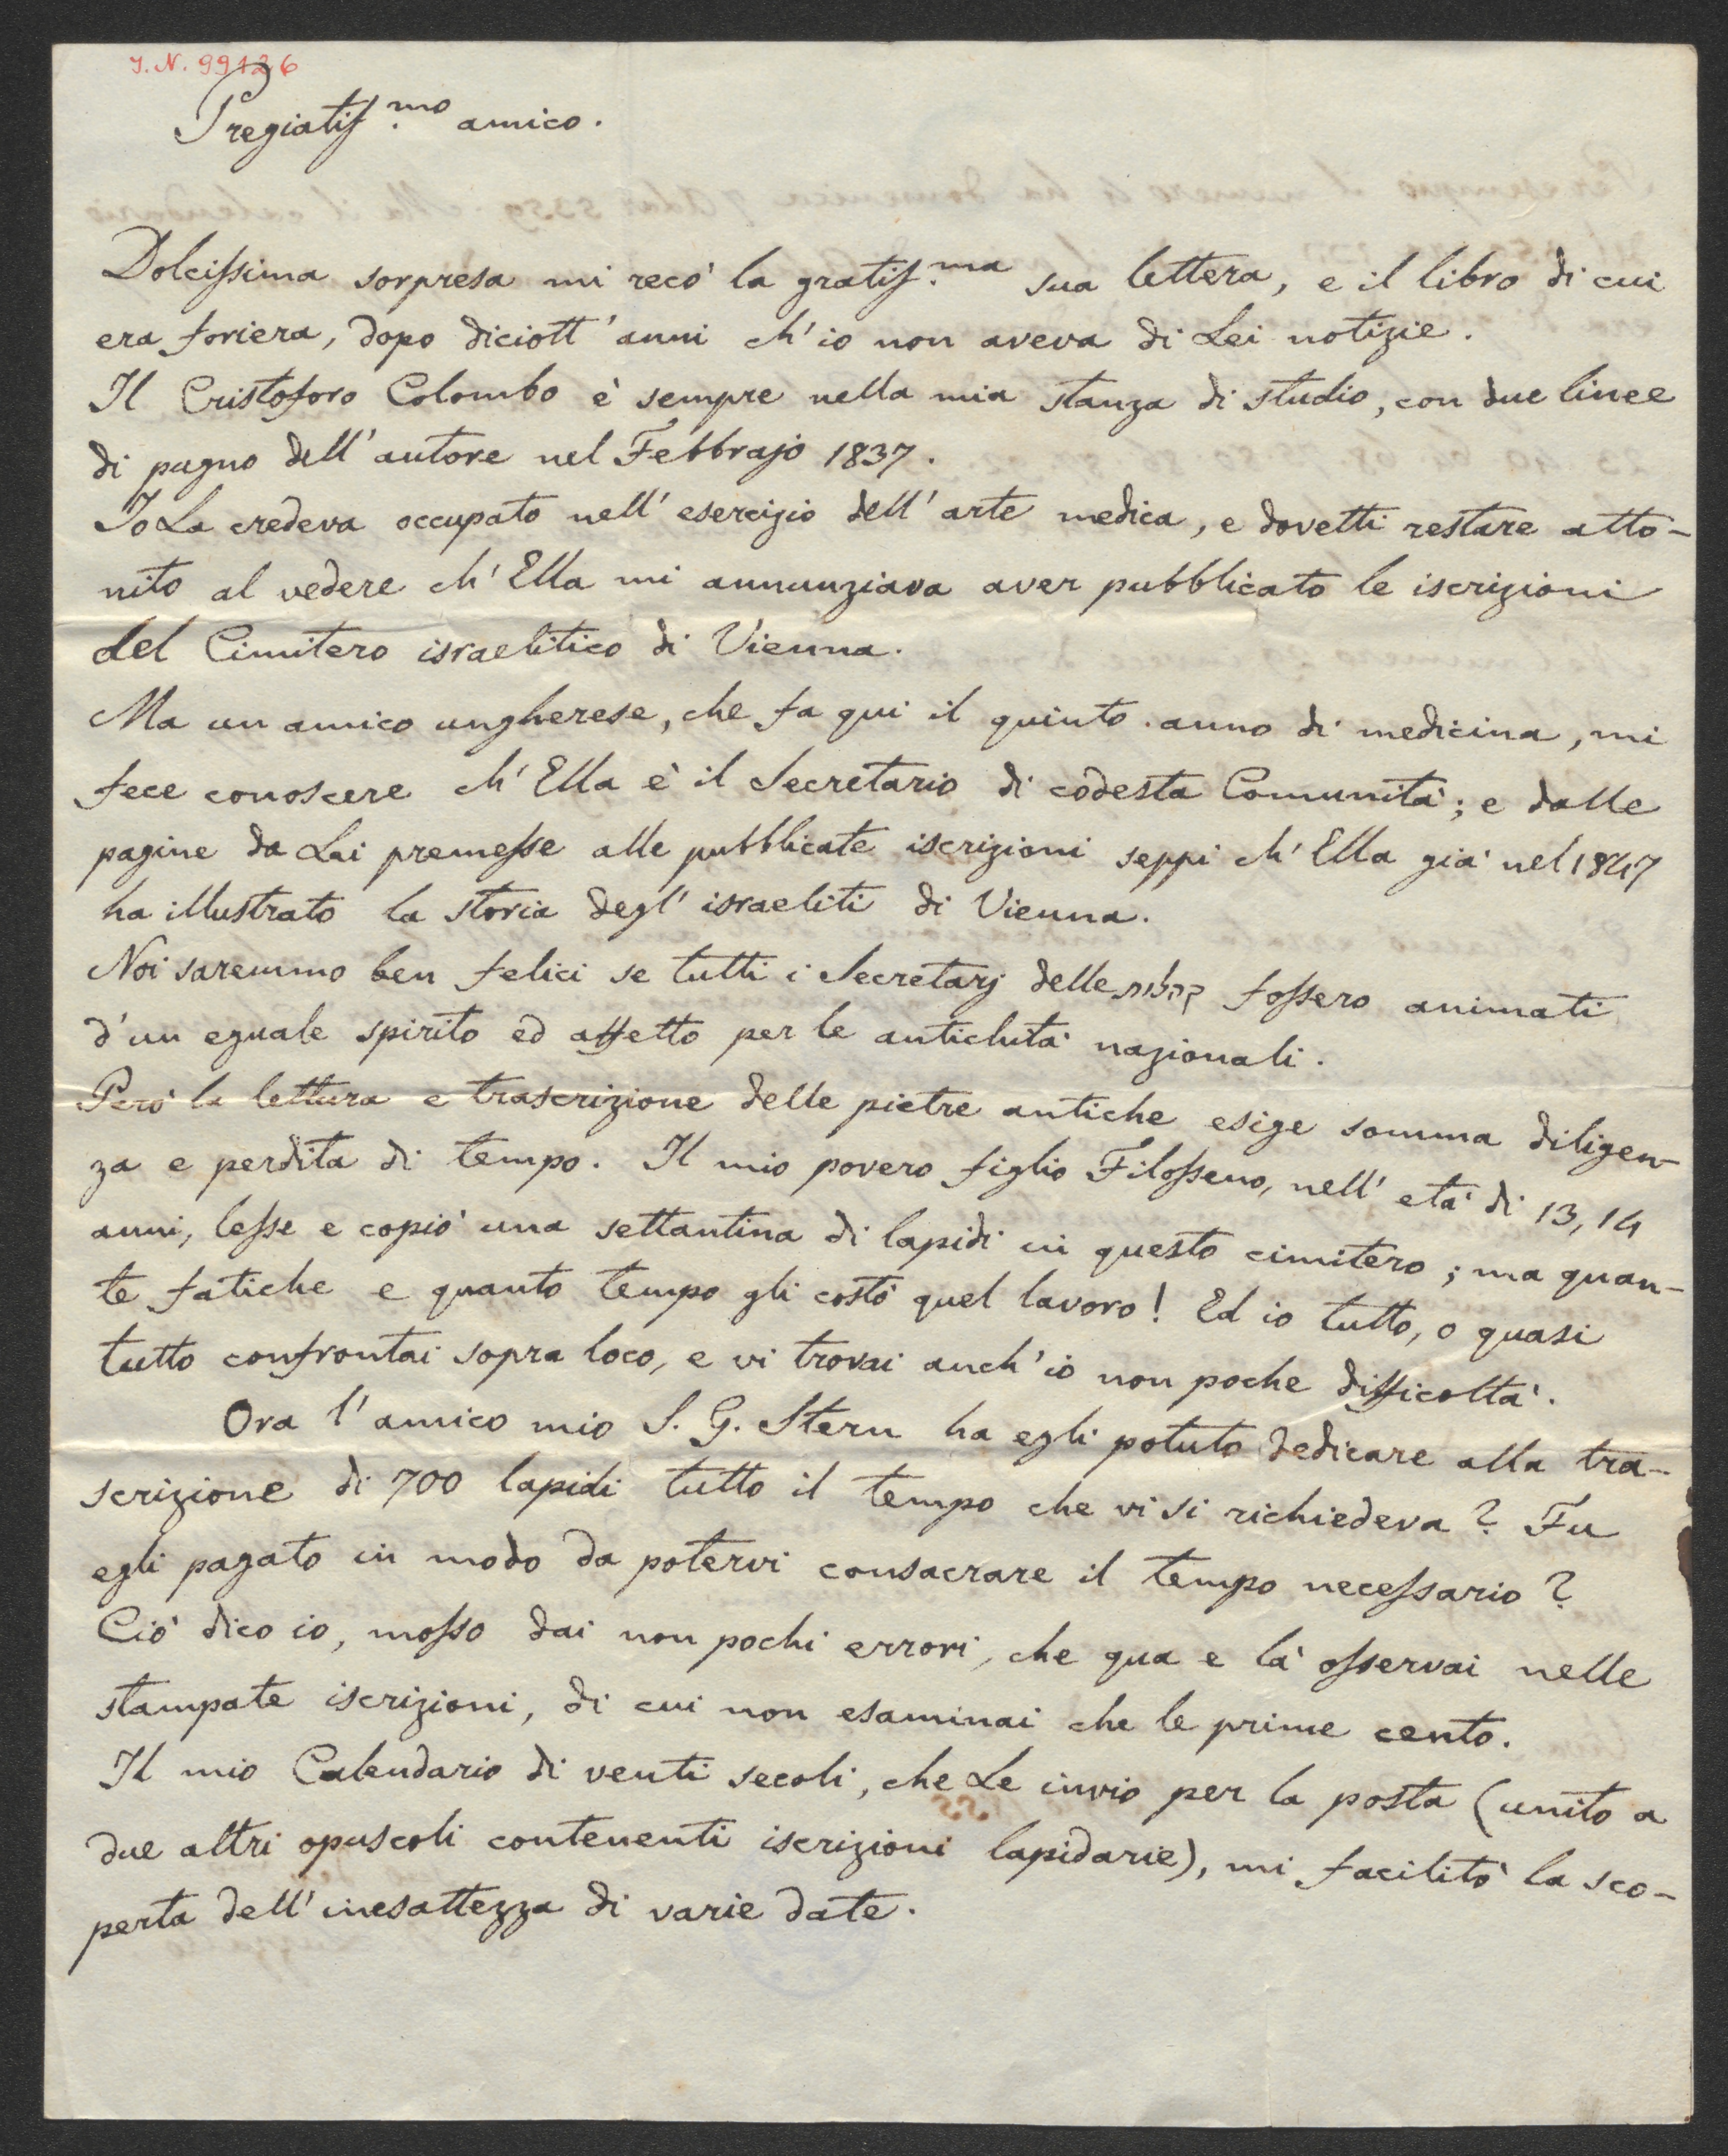 I.N. 99126
Pregiatiss.mo amico.
Dolcissima sorpresa mi recò la gratiss.ma sua lettera, e il libro di cui
era foriera, dopo diciott'anni ch'io non aveva di Lei notizie.
Il Cristoforo Colombo è sempre nella mia stanza di studio, con due linee
di pugno dell'autore nel Febbrajo 1837.
Io La credeva occupato nell'esercizio dell'arte medica, e dovetti restare atto-
nito al vedere ch'Ella mi annunziava aver pubblicato le iscrizioni
del Cimitero israelitico di Vienna.
Ma un amico ungherese, che fa qui il quinto anno di medicina, mi
fece conoscere ch'Ella è il Secretario di codesta Comunità; e dalle
pagine da Lei premesse alle pubblicate iscrizioni seppi ch'Ella già nel 1847
ha illustrato la storia degl'israeliti di Vienna.
Noi saremmo ben felici se tutti i Secretarj delle קהלות fossero animati
d'un eguale spirito ed affetto per le antichità nazionali.
Però la lettura e trascrizione delle pietre antiche esige somma diligen-
za e perdita di tempo. Il mio povero figlio Filosseno, nell'età di 13, 14
anni, lesse e copiò una settantina di lapidi in questo cimitero; ma quan-
te fatiche e quanto tempo gli costò quel lavoro! Ed io tutto, o quasi
tutto confrontai sopra loco, e vi trovai anch'io non poche difficoltà.
Ora l'amico mio S. G. Stern ha egli potuto dedicare alla tra-
scrizione di 700 lapidi tutto il tempo che vi si richiedeva? Fu
egli pagato in modo da potervi consacrare il tempo necessario?
Ciò dico io, mosso dai non pochi errori, che qua e là osservai nelle
stampate iscrizioni, di cui non esaminai che le prime cento.
Il mio Calendario di venti secoli, che Le invio per la posta (unito a
due altri opuscoli contenenti iscrizioni lapidarie), mi facilitò la sco-
perta dell'inesattezza di varie date.